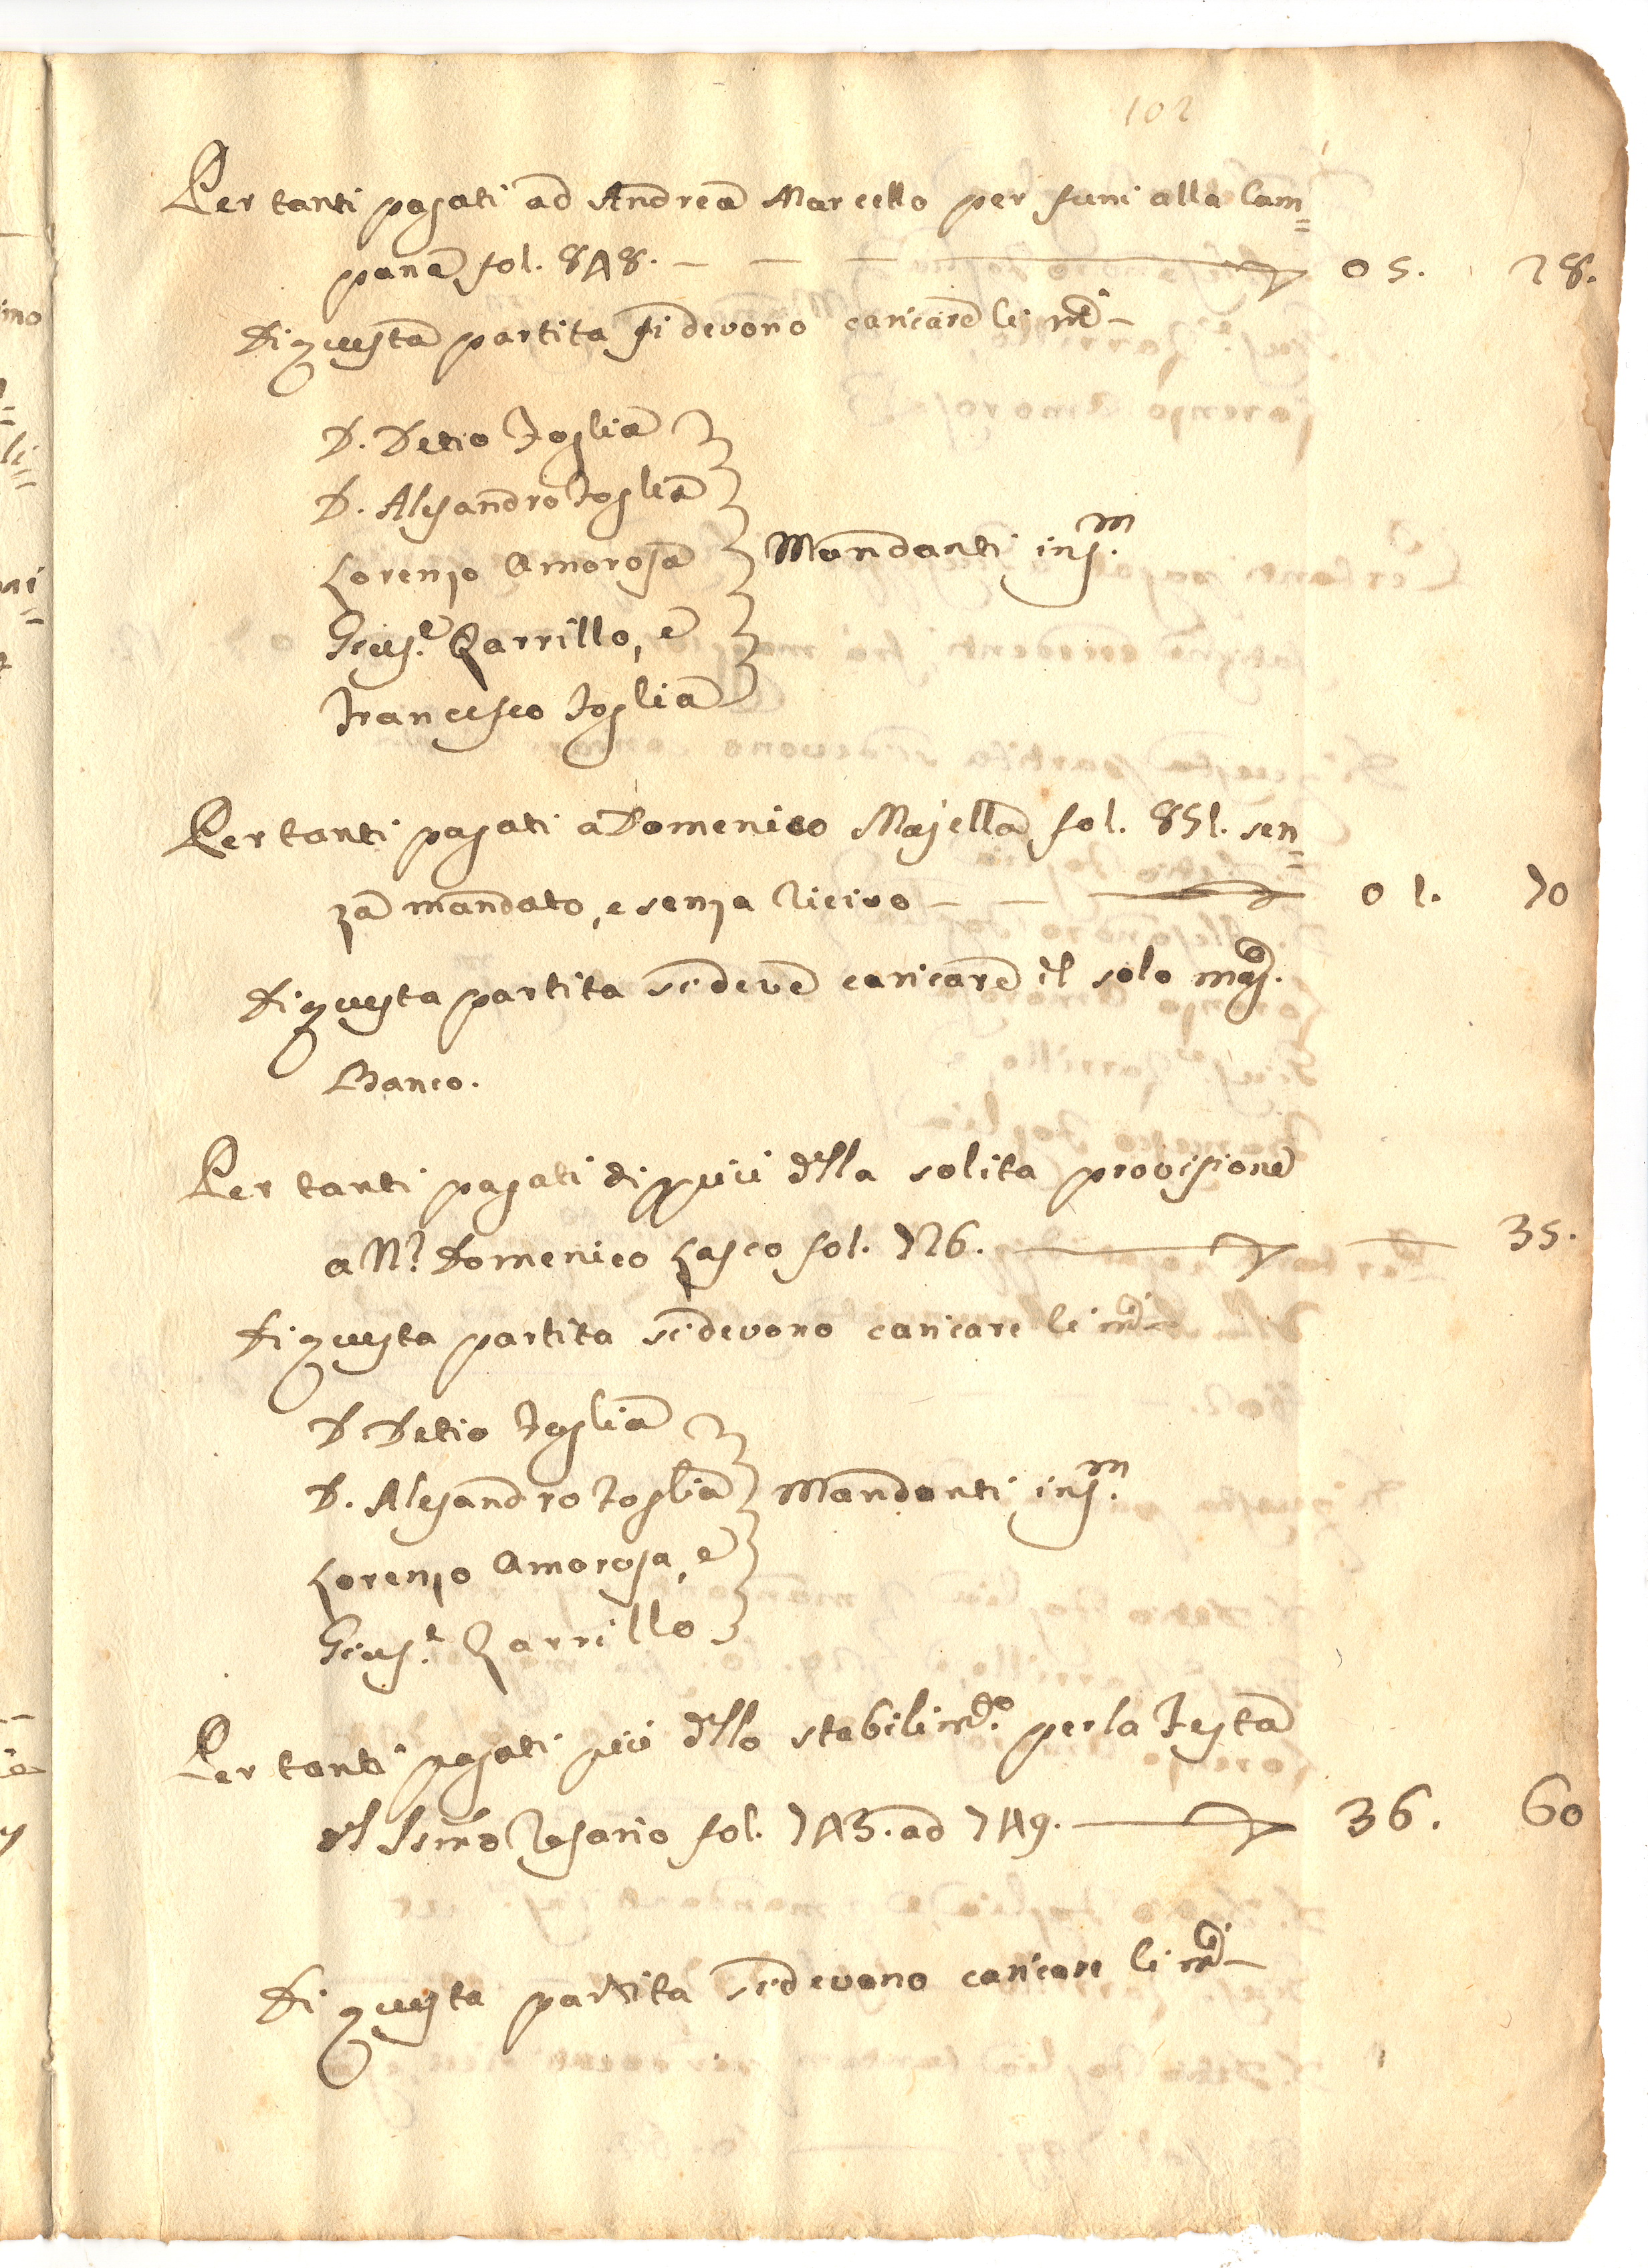 102
Per tanti pagati ad Andrea Marcello per funi alla Cam=
pana fol. 848. — — — 05. 28.
Di questa partita si devono caricare li
D. Detio Foglia
D. Alesandro Foglia
Lorenzo Amorosa Mandanti ins.m
Gius.e Zarrillo, e
Francesco Foglia
Per tanti pagati a Domenico Majella fol. 851. sen=
za mandato, e senza ricivo — — 01. 70
Di questa partita si deve caricare il solo mag.
Banco.
Per tanti pagati di più della solita provisione
a N.r Domenico Lasco fol. 726. — 35.
Di questa partita si devono caricare li
D Detio Foglia
D. Alesandro Foglia Mandanti ins.m
Lorenzo Amorosa, e
Gius.e Zarrillo
Per tanti pagati più dello stabilim.to per la Festa
del SSmo Rosario fol. 743. ad 749. — 36. 60
Di questa partita si devono caricare li